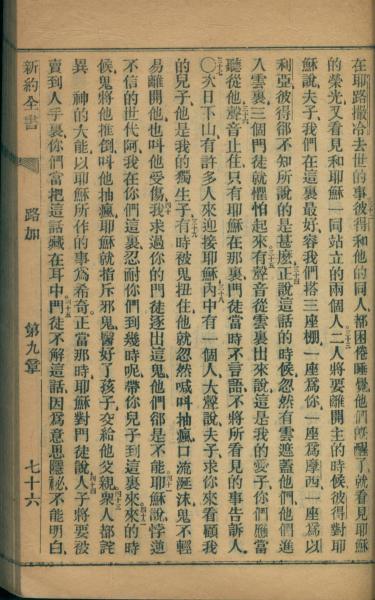 在耶路撒冷去世的事彼得和他的同人都困倦睡覺他們醒了就看見耶穌
三十二
的榮光又看見和耶穌一同站立的兩個人二人將要離開主的時候彼得對耶
三十三
穌說夫子我們在這裏最好容我們搭三座棚一座為你一座為摩西一座為以
利亞彼得卻不知所說的是甚麼正說這話的時候忽然有雲遮蓋他們他們進
三十四
入雲裏三個門徒就懼怕起來有聲音從雲裏出來說這是我的愛子你們應當
三十五
聽從他聲音止住只有耶穌在那裏門徒當時不言語不將所看見的事告訴人
三十六
○次日下山有許多人來迎接耶穌內中有一個人大聲說夫子求你來看顧我
三十七
三十八
的兒子他是我的獨生子有時被鬼扭住他就忽然喊叫抽瘋口流涎沫鬼不輕
三十九
易離開他也叫他受傷我求過你的門徒逐出這鬼他們卻是不能耶穌說悖逆
四十
四十一
不信的世代阿我在你們這裏忍耐你們到幾時呢帶你兒子到這裏來來的時
四十二
候鬼將他推倒叫他抽瘋耶穌就指斥邪鬼醫好了孩子交給他父親眾人都詫
四十三
異 神的大能以耶穌所作的事為希奇正當那時耶穌對門徒說人子將要被
四十四
賣到人手裏你們當把這話藏在耳中門徒不解這話因為意思隱祕不能明白
四十五
新約全書
路加
第九章
七十六